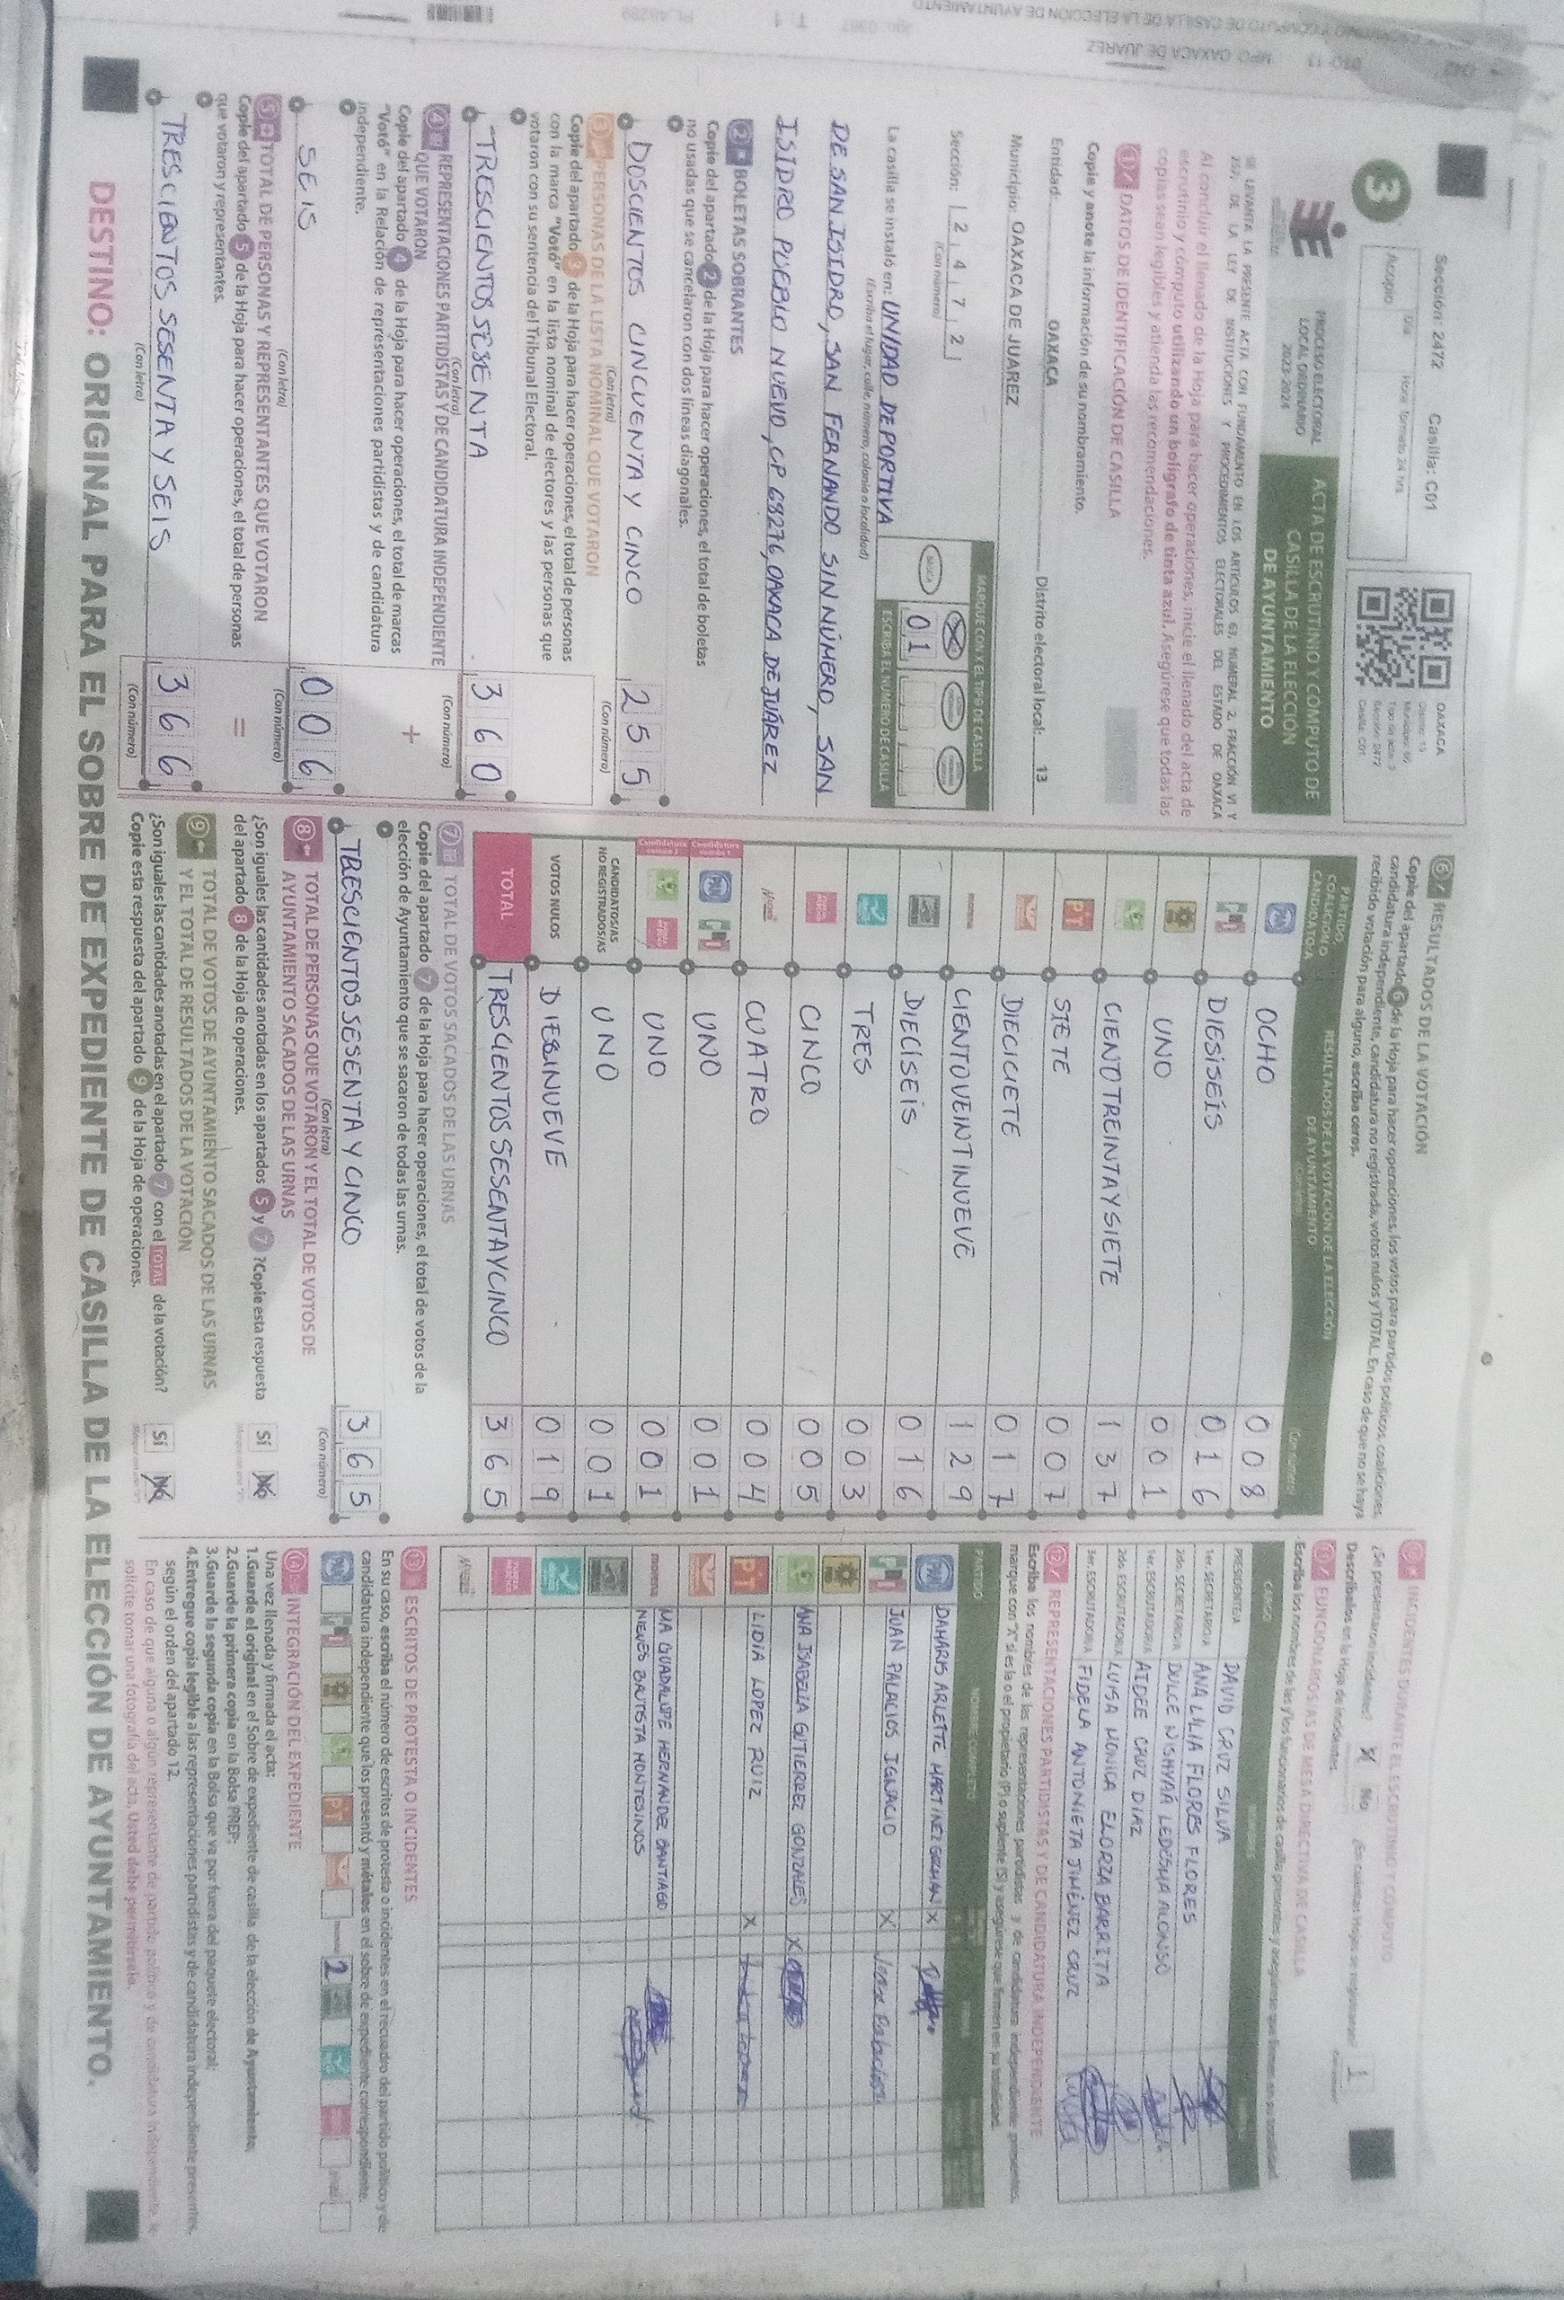 3
Sección: 2472 Casilla: C01
Acopio
Día
Hora formato 24 hrs.
OAXACA
Distrito: 13
Tipo de acta: 3
Sección: 2472
Casilla: C01
PROCESO ELECTORAL
LOCAL ORDINARIO
2023-2024
ACTA DE ESCRUTINIO Y CÓMPUTO DE
CASILLA DE LA ELECCIÓN
DE AYUNTAMIENTO
SE LEVANTA LA PRESENTE ACTA CON FUNDAMENTO EN LOS ARTÍCULOS 63, NUMERAL 2, FRACCIÓN VI Y
DE LA LEY DE INSTITUCIONES Y PROCEDIMIENTOS ELECTORALES DEL ESTADO DE OAXACA
Al concluir el llenado de la Hoja para hacer operaciones, inicie el llenado del acta de
escrutinio y cómputo utilizando un bolígrafo de tinta azul. Asegúrese que todas las
copias sean legibles y atienda las recomendaciones.
1 DATOS DE IDENTIFICACIÓN DE CASILLA
Copie y anote la información de su nombramiento.
Entidad: OAXACA Distrito electoral local: 13
Municipio: OAXACA DE JUAREZ
Sección: 2 4 7 2
(Con número)
MARQUE CON X EL TIPO DE CASILLA
BÁSICA
0 1
ESCRIBA EL NÚMERO DE CASILLA
La casilla se instaló en: UNIDAD DEPORTIVA
(Escriba el lugar, calle, número, colonia o localidad)
DE SAN ISIDRO, SAN FERNANDO SIN NÚMERO, SAN
ISIDRO PUEBLO NUEVO, CP 68276, OAXACA DE JUÁREZ
2 BOLETAS SOBRANTES
Copie del apartado 2 de la Hoja para hacer operaciones, el total de boletas
no usadas que se cancelaron con dos líneas diagonales.
DOSCIENTOS CINCUENTA Y CINCO 2 5 5
(Con letra) (Con número)
3 PERSONAS DE LA LISTA NOMINAL QUE VOTARON
Copie del apartado 3 de la Hoja para hacer operaciones, el total de personas
con la marca "Votó" en la lista nominal de electores y las personas que
votaron con su sentencia del Tribunal Electoral.
TRESCIENTOS SESENTA 3 6 0
(Con letra) (Con número)
4 REPRESENTACIONES PARTIDISTAS Y DE CANDIDATURA INDEPENDIENTE
QUE VOTARON
Copie del apartado 4 de la Hoja para hacer operaciones, el total de marcas
"Votó" en la Relación de representaciones partidistas y de candidatura
independiente.
+
SEIS 0 0 6
(Con letra) (Con número)
5 TOTAL DE PERSONAS Y REPRESENTANTES QUE VOTARON
Copie del apartado 5 de la Hoja para hacer operaciones, el total de personas
que votaron y representantes.
=
TRESCIENTOS SESENTA Y SEIS 3 6 6
(Con letra) (Con número)
6 RESULTADOS DE LA VOTACIÓN
Copie del apartado 6 de la Hoja para hacer operaciones, los votos para partidos políticos, coaliciones,
candidatura independiente, candidatura no registrada, votos nulos y TOTAL. En caso de que no se haya
recibido votación para alguno, escriba ceros.
PARTIDO,
COALICIÓN O
CANDIDATO/A
RESULTADOS DE LA VOTACIÓN DE LA ELECCIÓN
DE AYUNTAMIENTO
(Con número)
PAN OCHO 0 0 8
PRI DIESISEÍS 0 1 6
UNO 0 0 1
CIENTO TREINTA Y SIETE 1 3 7
PT SIETE 0 0 7
DIECICIETE 0 1 7
morena CIENTO VEINTINUEVE 1 2 9
DIECÍSEIS 0 1 6
TRES 0 0 3
CINCO 0 0 5
CUATRO 0 0 4
PAN PRI UNO 0 0 1
UNO 0 0 1
CANDIDATOS/AS
NO REGISTRADOS/AS UNO 0 0 1
VOTOS NULOS DIESINUEVE 0 1 9
TOTAL TRESCIENTOS SESENTAYCINCO 3 6 5
7 TOTAL DE VOTOS SACADOS DE LAS URNAS
Copie del apartado 7 de la Hoja para hacer operaciones, el total de votos de la
elección de Ayuntamiento que se sacaron de todas las urnas.
TRESCIENTOS SESENTA Y CINCO 3 6 5
(Con letra) (Con número)
8 TOTAL DE PERSONAS QUE VOTARON Y EL TOTAL DE VOTOS DE
AYUNTAMIENTO SACADOS DE LAS URNAS
¿Son iguales las cantidades anotadas en los apartados 5 y 7 ? Copie esta respuesta
del apartado 8 de la Hoja de operaciones.
Sí No
9 TOTAL DE VOTOS DE AYUNTAMIENTO SACADOS DE LAS URNAS
Y EL TOTAL DE RESULTADOS DE LA VOTACIÓN
¿Son iguales las cantidades anotadas en el apartado 7 con el TOTAL de la votación?
Copie esta respuesta del apartado 9 de la Hoja de operaciones.
Sí No
INCIDENTES DURANTE EL ESCRUTINIO Y CÓMPUTO
¿Se presentaron incidentes? No 1
Descríbalos en la Hoja de incidentes.
FUNCIONARIOS/AS DE MESA DIRECTIVA DE CASILLA
CARGO
PRESIDENTE/A DAVID CRUZ SILVA
1er. SECRETARIO/A ANA LILIA FLORES FLORES
2do. SECRETARIO/A DULCE NISHYAÁ LEDESMA ALONSO
1er. ESCRUTADOR/A AIDEE CRUZ DÍAZ
2do. ESCRUTADOR/A LUISA MONICA ELORZA BARRITA
3er. ESCRUTADOR/A FIDELA ANTONIETA JIMÉNEZ CRUZ
12 REPRESENTACIONES PARTIDISTAS Y DE CANDIDATURA INDEPENDIENTE
Escriba los nombres de las representaciones partidistas y de candidatura independiente presentes,
marque con "X" si es la o el propietario (P) o suplente (S) y asegúrese que firmen en su totalidad.
PARTIDO NOMBRE COMPLETO
PAN DAMARIS ARLETTE MARTINEZ GUZMAN X
PRI JUAN PALACIOS IGNACIO X Juan Palacios
ANA ISABELLA GUTIERREZ GONZALES X
PT LIDIA LOPEZ RUIZ X
morena MA GUADALUPE HERNANDEZ SANTIAGO
NIEVES BAUTISTA MONTESINOS
13 ESCRITOS DE PROTESTA O INCIDENTES
En su caso, escriba el número de escritos de protesta o incidentes en el recuadro del partido político y de
candidatura independiente que los presentó y métalos en el sobre de expediente correspondiente.
2
14 INTEGRACIÓN DEL EXPEDIENTE
Una vez llenada y firmada el acta:
1.Guarde el original en el Sobre de expediente de casilla de la elección de Ayuntamiento;
2.Guarde la primera copia en la Bolsa PREP;
3.Guarde la segunda copia en la Bolsa que va por fuera del paquete electoral;
4.Entregue copia legible a las representaciones partidistas y de candidatura independiente presentes,
según el orden del apartado 12.
En caso de que alguna o algún representante de partido político y de candidatura independiente, le
solicite tomar una fotografía del acta, Usted debe permitirselo.
DESTINO: ORIGINAL PARA EL SOBRE DE EXPEDIENTE DE CASILLA DE LA ELECCIÓN DE AYUNTAMIENTO.